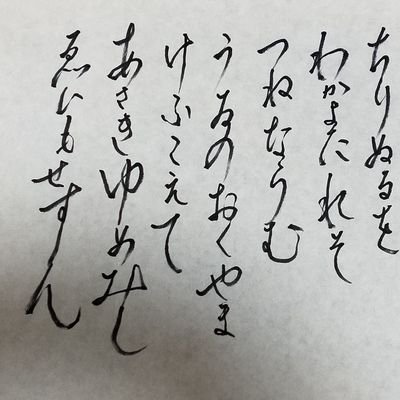 ちりぬるを
わかよたれそ
つねならむ
うゐのおくやま
けふこえて
あさきゆめみし
ゑひもせすん